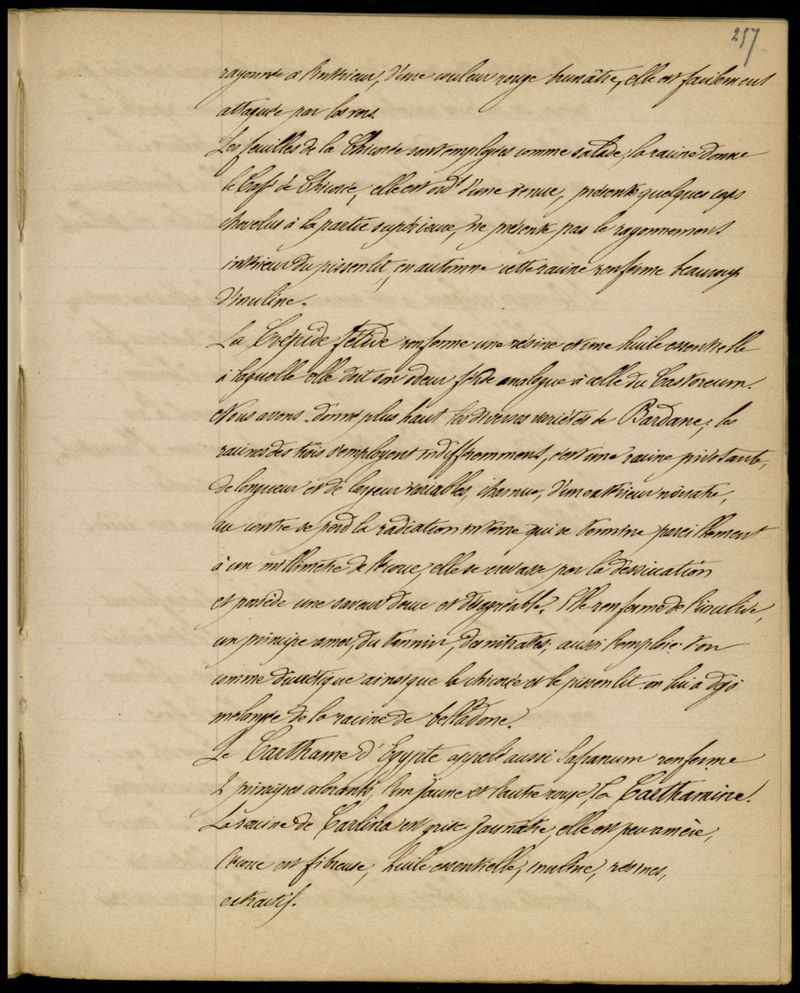 257
rayonnée à l'intérieur, d'une couleur rouge brunâtre, elle est facilement
attaquée par les vers.
Les feuilles de la Chicorée sont employées comme salade, la racine donne
le Café de Chicorée, elle est d'une venue, présente quelques
chevelus à la partie supérieure, ne présente pas le rayonnement
intérieur du pissenlit, en automne cette racine renferme beaucoup
d'inuline.
La Crépide fétide renferme une résine et une huile essentielle
à laquelle elle doit son odeur fétide analogue à celle du Castoreum.
Nous avons donné plus haut les diverses variétés de Bardane; les
racines des trois s'employent indifféremment, c'est une racine pivotante,
de longueur et de largeur variables, charnue, d'un extérieur noirâtre,
au centre se perd la radiation interne qui se termine pareillement
à un millimètre de l'écorce, elle se crevasse par la dessiccation
et possède une saveur douce et désagréable. Elle renferme de l'inuline,
un principe amer, du tannin, des nitrates; aussi l'emploie-t-on
comme diurétique ainsi que la chicorée et le pissenlit on lui a déjà
mélangé de la racine de belladone.
Le Carthame d'Egypte appelé aussi Safranum renferme
2 principes colorants, l'un jaune et l'autre rouge, la Carthamine.
La racine de Carlina est grise jaunâtre, elle est peu amère,
l'écorce est fibreuse, huile essentielle, inuline, résines,
extractif.